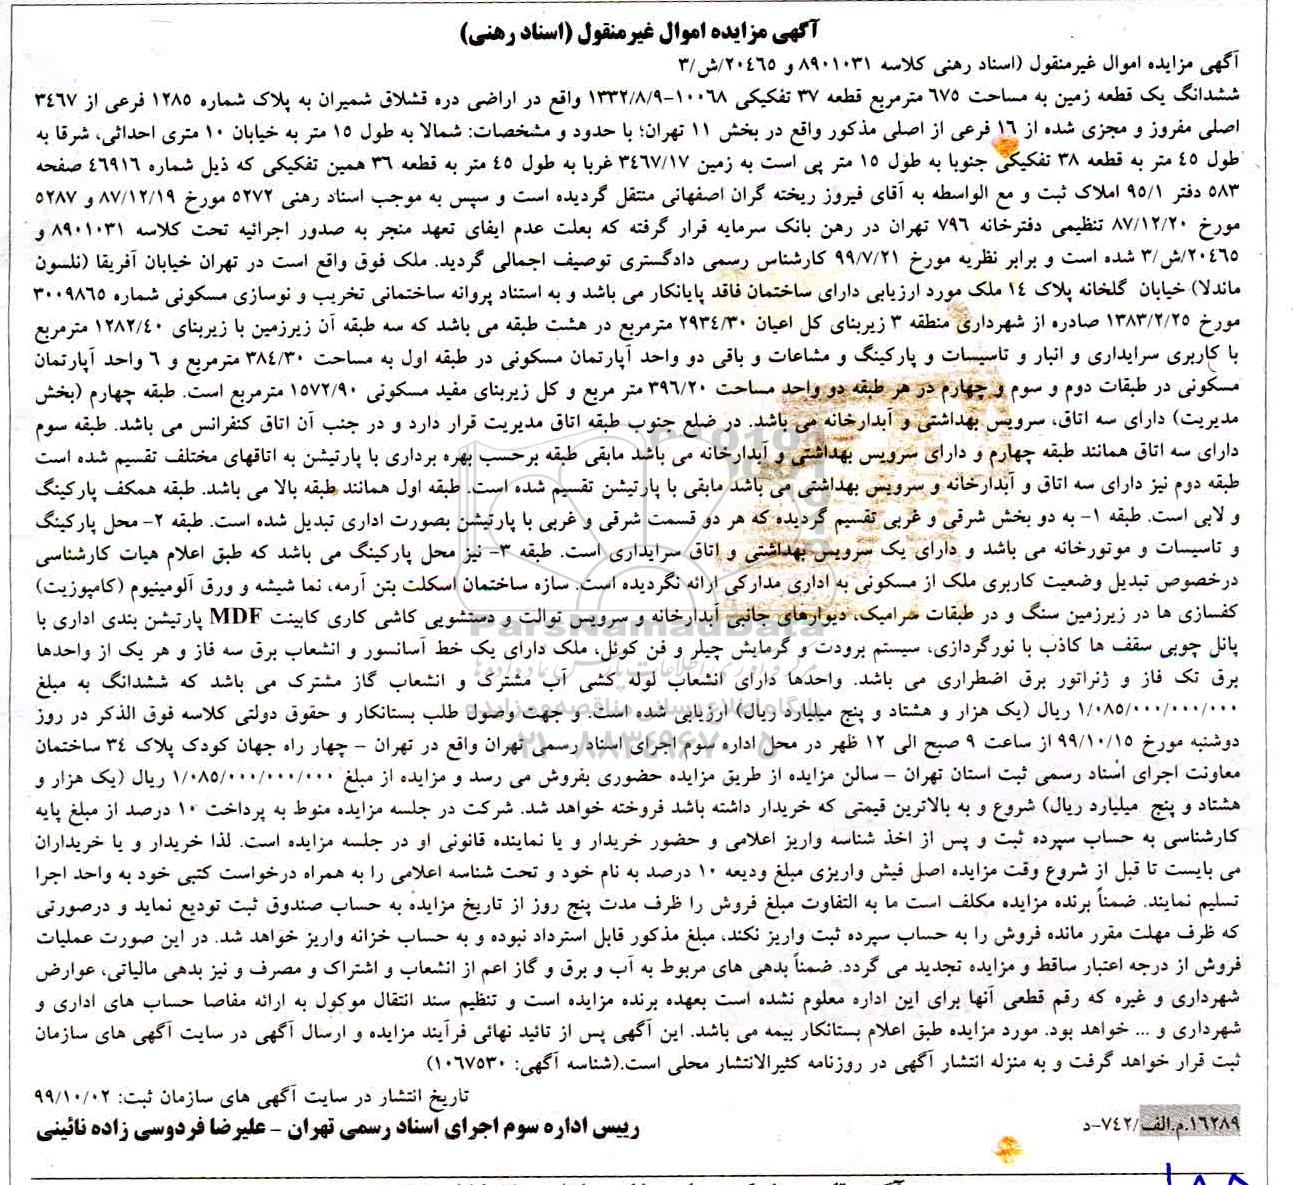 آگهی مزایده اموال غیرمنقول (اسناد رهنی)
آگهی مزایده اموال غیرمنقول (اسناد رهنی کلاسه ۸۹۰۱۰۳۱ و ۲۰٤٦٥/ش/۳
ششدانگ یک قطعه زمین به مساحت ٦۷٥ مترمربع قطعه ۳۷ تفکیکی ۱۰۰٦۸-۱۳۳۲/۸/۹ واقع در اراضی دره قشلاق شمیران به پلاک شماره ۱۲۸٥ فرعی از ۳٤٦۷
اصلی مفروز و مجزی شده از ۱٦ فرعی از اصلی مذکور واقع در بخش ۱۱ تهران؛ با حدود و مشخصات: شمالا به طول ۱٥ متر به خیابان ۱۰ متری احداثی، شرقا به
طول ٤٥ متر به قطعه ۳۸ تفکیکی جنوبا به طول ۱٥ متر پی است به زمین ۳٤٦۷/۱۷ غربا به طول ٤٥ متر به قطعه ۳٦ همین تفکیکی که ذیل شماره ٤٦۹۱٦ صفحه
٥۸۳ دفتر ۹٥/۱ املاک ثبت و مع الواسطه به آقای فیروز ریخته گران اصفهانی منتقل گردیده است و سپس به موجب اسناد رهنی ٥۲۷۲ مورخ ۸۷/۱۲/۱۹ و ٥۲۸۷
مورخ ۸۷/۱۲/۲۰ تنظیمی دفترخانه ۷۹٦ تهران در رهن بانک سرمایه قرار گرفته که بعلت عدم ایفای تعهد منجر به صدور اجرائیه تحت کلاسه ۸۹۰۱۰۳۱ و
۲۰٤٦٥/ش/۳ شده است و برابر نظریه مورخ ۹۹/۷/۲۱ کارشناس رسمی دادگستری توصیف اجمالی گردید. ملک فوق واقع است در تهران خیابان آفریقا (نلسون
ماندلا) خیابان گلخانه پلاک ۱٤ ملک مورد ارزیابی دارای ساختمان فاقد پایانکار می باشد و به استناد پروانه ساختمانی تخریب و نوسازی مسکونی شماره ۳۰۰۹۸٦٥
مورخ ۱۳۸۳/۲/۲٥ صادره از شهرداری منطقه ۳ زیربنای کل اعیان ۲۹۳٤/۳۰ مترمربع در هشت طبقه می باشد که سه طبقه آن زیرزمین با زیربنای ۱۲۸۲/٤۰ مترمربع
با کاربری سرایداری و انبار و تاسیسات و پارکینگ و مشاعات و باقی دو واحد آپارتمان مسکونی در طبقه اول به مساحت ۳۸٤/۳۰ مترمربع و ٦ واحد آپارتمان
مسکونی در طبقات دوم و سوم و چهارم در هر طبقه دو واحد مساحت ۳۹٦/۲۰ متر مربع و کل زیربنای مفید مسکونی ۱٥۷۲/۹۰ مترمربع است. طبقه چهارم (بخش
مدیریت) دارای سه اتاق، سرویس بهداشتی و آبدارخانه می باشد. در ضلع جنوب طبقه اتاق مدیریت قرار دارد و در جنب آن اتاق کنفرانس می باشد. طبقه سوم
دارای سه اتاق همانند طبقه چهارم و دارای سرویس بهداشتی و آبدارخانه می باشد مابقی طبقه برحسب بهره برداری با پارتیشن به اتاقهای مختلف تقسیم شده است
طبقه دوم نیز دارای سه اتاق و آبدارخانه و سرویس بهداشتی می باشد مابقی با پارتیشن تقسیم شده است. طبقه اول همانند طبقه بالا می باشد. طبقه همکف پارکینگ
و لابی است. طبقه ۱- به دو بخش شرقی و غربی تقسیم گردیده که هر دو قسمت شرقی و غربی با پارتیشن بصورت اداری تبدیل شده است. طبقه ۲- محل پارکینگ
و تاسیسات و موتورخانه می باشد و دارای یک سرویس بهداشتی و اتاق سرایداری است. طبقه ۳- نیز محل پارکینگ می باشد که طبق اعلام هیات کارشناسی
درخصوص تبدیل وضعیت کاربری ملک از مسکونی به اداری مدارکی ارائه نگردیده است. سازه ساختمان اسکلت بتن آرمه، نما شیشه و ورق آلومینیوم (کامپوزیت)
کفسازی ها در زیرزمین سنگ و در طبقات سرامیک، دیوارهای جانبی آبدارخانه و سرویس توالت و دستشویی کاشی کاری کابینت MDF پارتیشن بندی اداری با
پانل چوبی سقف ها کاذب با نورگردازی، سیستم برودت و گرمایش چیلر و فن کوئل، ملک دارای یک خط آسانسور و انشعاب برق سه فاز و هر یک از واحدها
برق تک فاز و ژنراتور برق اضطراری می باشد. واحدها دارای انشعاب لوله کشی آب مشترک و انشعاب گاز مشترک می باشد که ششدانگ به مبلغ
۱/۰۸٥/۰۰۰/۰۰۰/۰۰۰ ریال (یک هزار و هشتاد و پنج میلیارد ریال) ارزیابی شده است. و جهت وصول طلب بستانکار و حقوق دولتی کلاسه فوق الذکر در روز
دوشنبه مورخ ۹۹/۱۰/۱٥ از ساعت ۹ صبح الی ۱۲ ظهر در محل اداره سوم اجرای اسناد رسمی تهران واقع در تهران - چهار راه جهان کودک پلاک ۳٤ ساختمان
معاونت اجرای اسناد رسمی ثبت استان تهران - سالن مزایده از طریق مزایده حضوری بفروش می رسد و مزایده از مبلغ ۱/۰۸٥/۰۰۰/۰۰۰/۰۰۰ ریال (یک هزار و
هشتاد و پنج میلیارد ریال) شروع و به بالاترین قیمتی که خریدار داشته باشد فروخته خواهد شد. شرکت در جلسه مزایده منوط به پرداخت ۱۰ درصد از مبلغ پایه
کارشناسی به حساب سپرده ثبت و پس از اخذ شناسه واریز اعلامی و حضور خریدار و یا نماینده قانونی او در جلسه مزایده است. لذا خریدار و یا خریداران
می بایست تا قبل از شروع وقت مزایده اصل فیش واریزی مبلغ ودیعه ۱۰ درصد به نام خود و تحت شناسه اعلامی را به همراه درخواست کتبی خود به واحد اجرا
تسلیم نمایند. ضمناً برنده مزایده مکلف است ما به التفاوت مبلغ فروش را ظرف مدت پنج روز از تاریخ مزایده به حساب صندوق ثبت تودیع نماید و درصورتی
که ظرف مهلت مقرر مانده فروش را به حساب سپرده ثبت واریز نکند، مبلغ مذکور قابل استرداد نبوده و به حساب خزانه واریز خواهد شد. در این صورت عملیات
فروش از درجه اعتبار ساقط و مزایده تجدید می گردد. ضمناً بدهی های مربوط به آب و برق و گاز اعم از انشعاب و اشتراک و مصرف و نیز بدهی مالیاتی، عوارض
شهرداری و غیره که رقم قطعی آنها برای این اداره معلوم نشده است بعهده برنده مزایده است و تنظیم سند انتقال موکول به ارائه مفاصا حساب های اداری و
شهرداری و ... خواهد بود. مورد مزایده طبق اعلام بستانکار بیمه می باشد. این آگهی پس از تائید نهائی فرآیند مزایده و ارسال آگهی در سایت آگهی های سازمان
ثبت قرار خواهد گرفت و به منزله انتشار آگهی در روزنامه کثیرالانتشار محلی است.(شناسه آگهی: ۱۰٦۷٥۳۰)
تاریخ انتشار در سایت آگهی های سازمان ثبت: ۹۹/۱۰/۰۲
۱٦۲۸۹.م.الف/۷٤۲-د
رییس اداره سوم اجرای اسناد رسمی تهران - علیرضا فردوسی زاده نائینی
ParsNamadData
پایگاه اطلاع رسانی مناقصه و مزایده